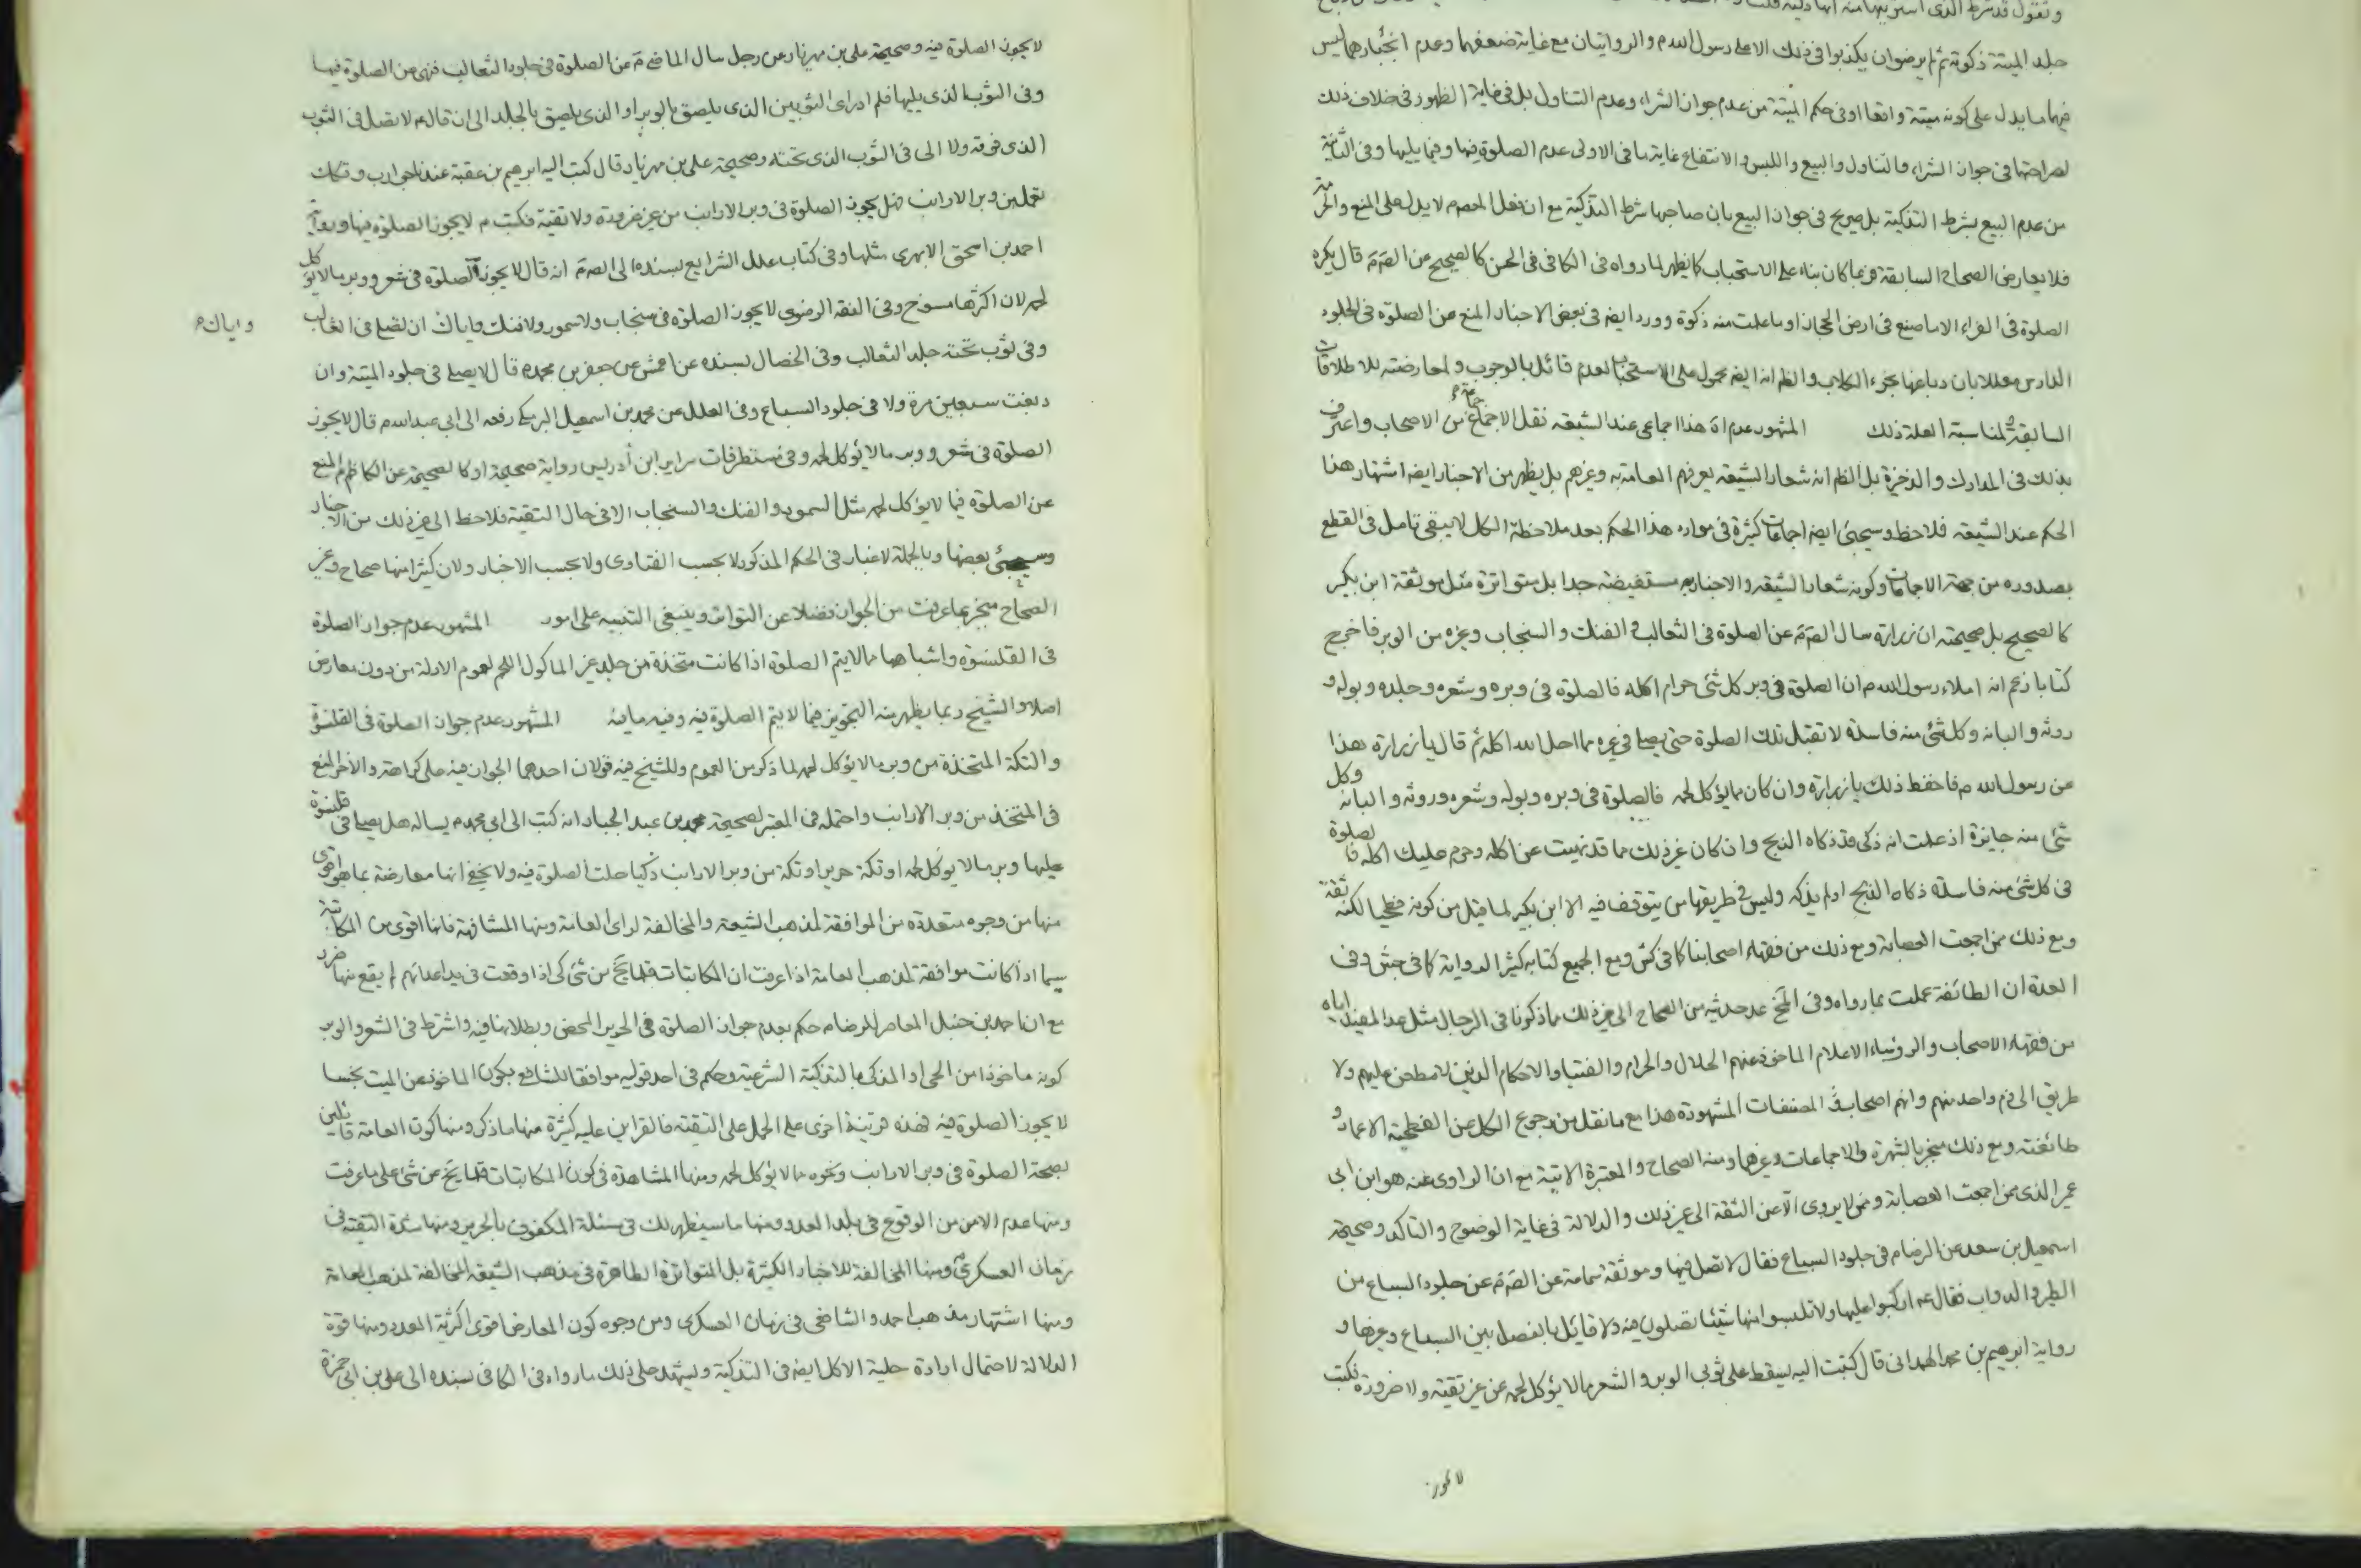 وتقول قد شرط الذى اشتريتها منه انها ذكية قلت
جلد الميتة ذكوته ثم لم يرضوان يكذبوا فى ذلك الا على رسول الله م والروايتان مع غاية ضعفهما وعدم انجبارهما ليس
فيهما ما يدل على كونه ميتة واقعا او فى حكم الميتة من عدم جواز الشراء وعدم التناول بل فى غاية الظهور فى خلاف ذلك
لصراحتها فى جواز الشراء والتناول والبيع واللبس والانتفاع غاية ما فى الاولى عدم الصلوة فيها وفيما يليها وفى الثانية
من عدم البيع بشرط التذكية بل صريح فى جواز البيع بان صاحبها شرط التذكية مع ان فعل المعصوم لا يدل على المنع والحرمة
فلا يعارض الصحاح السابقة فربما كان بناء على الاستحباب كما يظهر لما رواه فى الكافى فى الحسن كالصحيح عن الصم قال يكره
الصلوة فى الفراء الا ما صنع فى ارض الحجاز او ما علمت منه ذكوة وورد ايضه فى بعض الاخبار المنع عن الصلوة فى الجلود
الدارس معللا بان دباغها بخرء الكلاب والظم انه ايضه محمول على الاستحباب لعدم قائل بالوجوب ولمعارضته للاطلاقات
السابقة ولمناسبة العلة ذلك المشهور عدم اه هذا اجماعى عند الشيعه نقل الاجماع جماعة من الاصحاب واعترف
بذلك فى المدارك والذخيرة بل الظم انه شعار الشيعه يعرفهم العامة به وغيرهم بل يظهر من الاخبار ايضه اشتهار هذا
الحكم عند الشيعه فلاحظ وسيجئ ايضه اجماعات كثيرة فى موارد هذا الحكم بعد ملاحظة الكل لا يبقى تامل فى القطع
بصدوره من جهة الاجماعات وكونه شعار الشيعه والاخبار به مستفيضة جدا بل متواترة مثل موثقة ابن بكير
كالصحيح بل صحيحته ان زرارة سال الصم عن الصلوة فى الثعالب والفنك والسنجاب وغيره من الوبر فاخرج
كتابا زعم انه املاء رسول الله م ان الصلوة فى وبر كل شئ حرام اكله فالصلوة فى وبره وشعره وجلده وبوله و
روثه والبانه وكل شئ منه فاسدة لا تقبل تلك الصلوة حتى يصلى فى غيره مما احل الله اكله ثم قال يا زرارة هذا
عن رسول الله م فاحفظ ذلك يا زرارة وان كان مما يؤكل لحمه فالصلوة فى وبره وبوله وشعره وروثه والبانه وكل
شئ منه جايزة اذ علمت انه ذكى قد ذكاه الذبح وان كان غير ذلك مما قد نهيت عن اكله وحرم عليك اكله فالصلوة
فى كل شئ منه فاسدة ذكاه الذبح او لم يذكه وليس فى طريقها من يتوقف فيه الا ابن بكير لما قيل من كونه فطحيا لكنه ثقة
ومع ذلك ممن اجمعت العصابة ومع ذلك من فقهاء اصحابنا كما فى كش ومع الجميع كتابه كثير الرواية كما فى جش وفى
العدة ان الطائفة عملت بما رواه وفى المخ عد حديثه من الصحاح الى غير ذلك مما ذكرنا فى الرجال مثل عد المفيد اياه
من فقهاء الاصحاب والرؤساء الاعلام الماخوذ عنهم الحلال والحرام والفتيا والاحكام الذين لا مطعن عليهم ولا
طريق الى ذم واحد منهم وانهم اصحاب المصنفات المشهودة هذا مع ما نقل من رجوع الكل عن الفطحية الا عمار و
طائفته ومع ذلك منجبر بالشهرة والاجماعات وغيرها ومنه الصحاح والمعتبرة الاتية مع ان الراوى عنه هو ابن ابى
عمير الذى ممن اجمعت العصابة وممن لا يروى الا عن الثقة الى غير ذلك والدلالة فى غاية الوضوح والتاكد وصحيحة
اسمعيل بن سعد عن الرضا م فى جلود السباع فقال لا تصل فيها وموثقة سماعة عن الصم عن جلود السباع من
الطير والدواب فقال عه اركبوا عليها ولا تلبسوا منها شيئا تصلون فيه ولا قائل بالفصل بين السباع وغيرها و
رواية ابرهيم بن محمد الهمدانى قال كتبت اليه يسقط على ثوبى الوبر والشعر مما لا يؤكل لحمه عن غير تقية ولا ضرورة فكتب
لا يجوز
لا يجوز الصلوة فيه وصحيحة على بن مهزيار عن رجل سال الماضى م عن الصلوة فى جلود الثعالب فنهى عن الصلوة فيها
وفى الثوب الذى يليها فلم ادر اى الثوبين الذى يلصق بالوبر او الذى يلصق بالجلد الى ان قال عه لا تصل فى الثوب
الذى فوقه ولا الى فى الثوب الذى تحته وصحيحة على بن مهزيار قال كتب اليه ابرهيم بن عقبة عندنا جوارب وتكك
تعمل من وبر الارانب فهل يجوز الصلوة فى وبر الارانب من غير ضرورة ولا تقية فكتب م لا يجوز الصلوة فيها ورواية
احمد بن اسحق الابهرى مثلها وفى كتاب علل الشرايع بسنده الى الصم انه قال لا يجوز الصلوة فى شعر ووبر ما لا يؤكل
لحمه لان اكثرها مسوخ وفى الفقه الرضوى لا يجوز الصلوة فى سنجاب ولا سمور ولا فنك واياك ان تصلى فى الثعالب
واياك م
وفى ثوب تحته جلد الثعالب وفى الخصال بسنده عن اعمش عن جعفر بن محمد م قال لا يصلى فى جلود الميتة وان
دبغت سبعين مرة ولا فى جلود السباع وفى العلل عن محمد بن اسمعيل البرمكى رفعه الى ابى عبد الله م قال لا يجوز
الصلوة فى شعر ووبر ما لا يؤكل لحمه وفى مستطرفات سراير ابن أدريس رواية صحيحة او كالصحيحة عن الكاظم م المنع
عن الصلوة فيما لا يؤكل لحمه مثل السمور والفنك والسنجاب الا فى حال التقية فلاحظ الى غير ذلك من الاخبار
وسيجئ بعضها وبالجملة لا غبار فى الحكم المذكور لا بحسب الفتاوى ولا بحسب الاخبار ولان كثيرا منها صحاح وغير
الصحاح منجبر بما عرفت من الجوابر فضلا عن التواتر وينبغى التنبيه على امور المشهور عدم جواز الصلوة
فى القلنسوة واشباهها مما لا يتم الصلوة اذا كانت متخذة من جلد غير الماكول اللحم لعموم الادلة من دون معارض
اصلا والشيخ ربما يظهر منه التجويز فيما لا يتم الصلوة فيه وفيه ما فيه المشهور عدم جواز الصلوة فى القلنسوة
والتكة المتخذة من وبر ما لا يؤكل لحمه لما ذكر من العموم وللشيخ فيه قولان احدهما الجواز فيه على كراهة والاخر المنع
فى المتخذ من وبر الارانب واحتمله فى المعتبر لصحيحة محمد بن عبد الجبار انه كتب الى ابى محمد م يساله هل يصلى فى قلنسوة
عليها وبر ما لا يؤكل لحمه او تكة حرير او تكة من وبر الارانب ذكيا حلت الصلوة فيه ولا يخفى انها معارضة بما هو اقوى
منها من وجوه متعددة من الموافقة لمذهب الشيعة والمخالفة لراى العامة ومنها المشافهة فانها اقوى من المكاتبة
سيما اذا كانت موافقة لمذهب العامة اذا عرفت ان المكاتبات قلما تخ من شئ كى اذا وقعت فى يد اعدائهم لم يقع منها ضرر
مع ان احمد بن حنبل المعاصر للرضا م حكم بعدم جواز الصلوة فى الحرير المحض وبطلانها فيه واشترط فى الشعر والوبر
كونه ماخوذا من الحى او المذكى بالتذكية الشرعية وحكم فى احد قوليه موافقا للشافعى بكون الماخوذ من الميت نجسا
لا يجوز الصلوة فيه فهذه قرينة اخرى على الحمل على التقية فالقراين عليه كثيرة منها ما ذكر ومنها كون العامة قائلين
بصحة الصلوة فى وبر الارانب ونحوه مما لا يؤكل لحمه ومنها المشاهدة فى كون المكاتبات قلما يخ عن شئ على ما عرفت
ومنها عدم الامن من الوقوع فى يد العدو ومنها ما سيظهر لك فى مسئلة المكفوف بالحرير ومنها شدة التقية فى
زمان العسكرى ومنها المخالفة للاخبار الكثيرة بل المتواترة الظاهرة فى مذهب الشيعه المخالفة لمذهب العامة
ومنها اشتهار مذهب احمد والشافعى فى زمان العسكرى ومن وجوه كون المعارض اقوى اكثرية العدد ومنها قوة
الدلالة لاحتمال ارادة حلية الاكل ايضه فى التذكية ويشهد على ذلك ما رواه فى الكافى بسنده الى على بن ابى حمزة